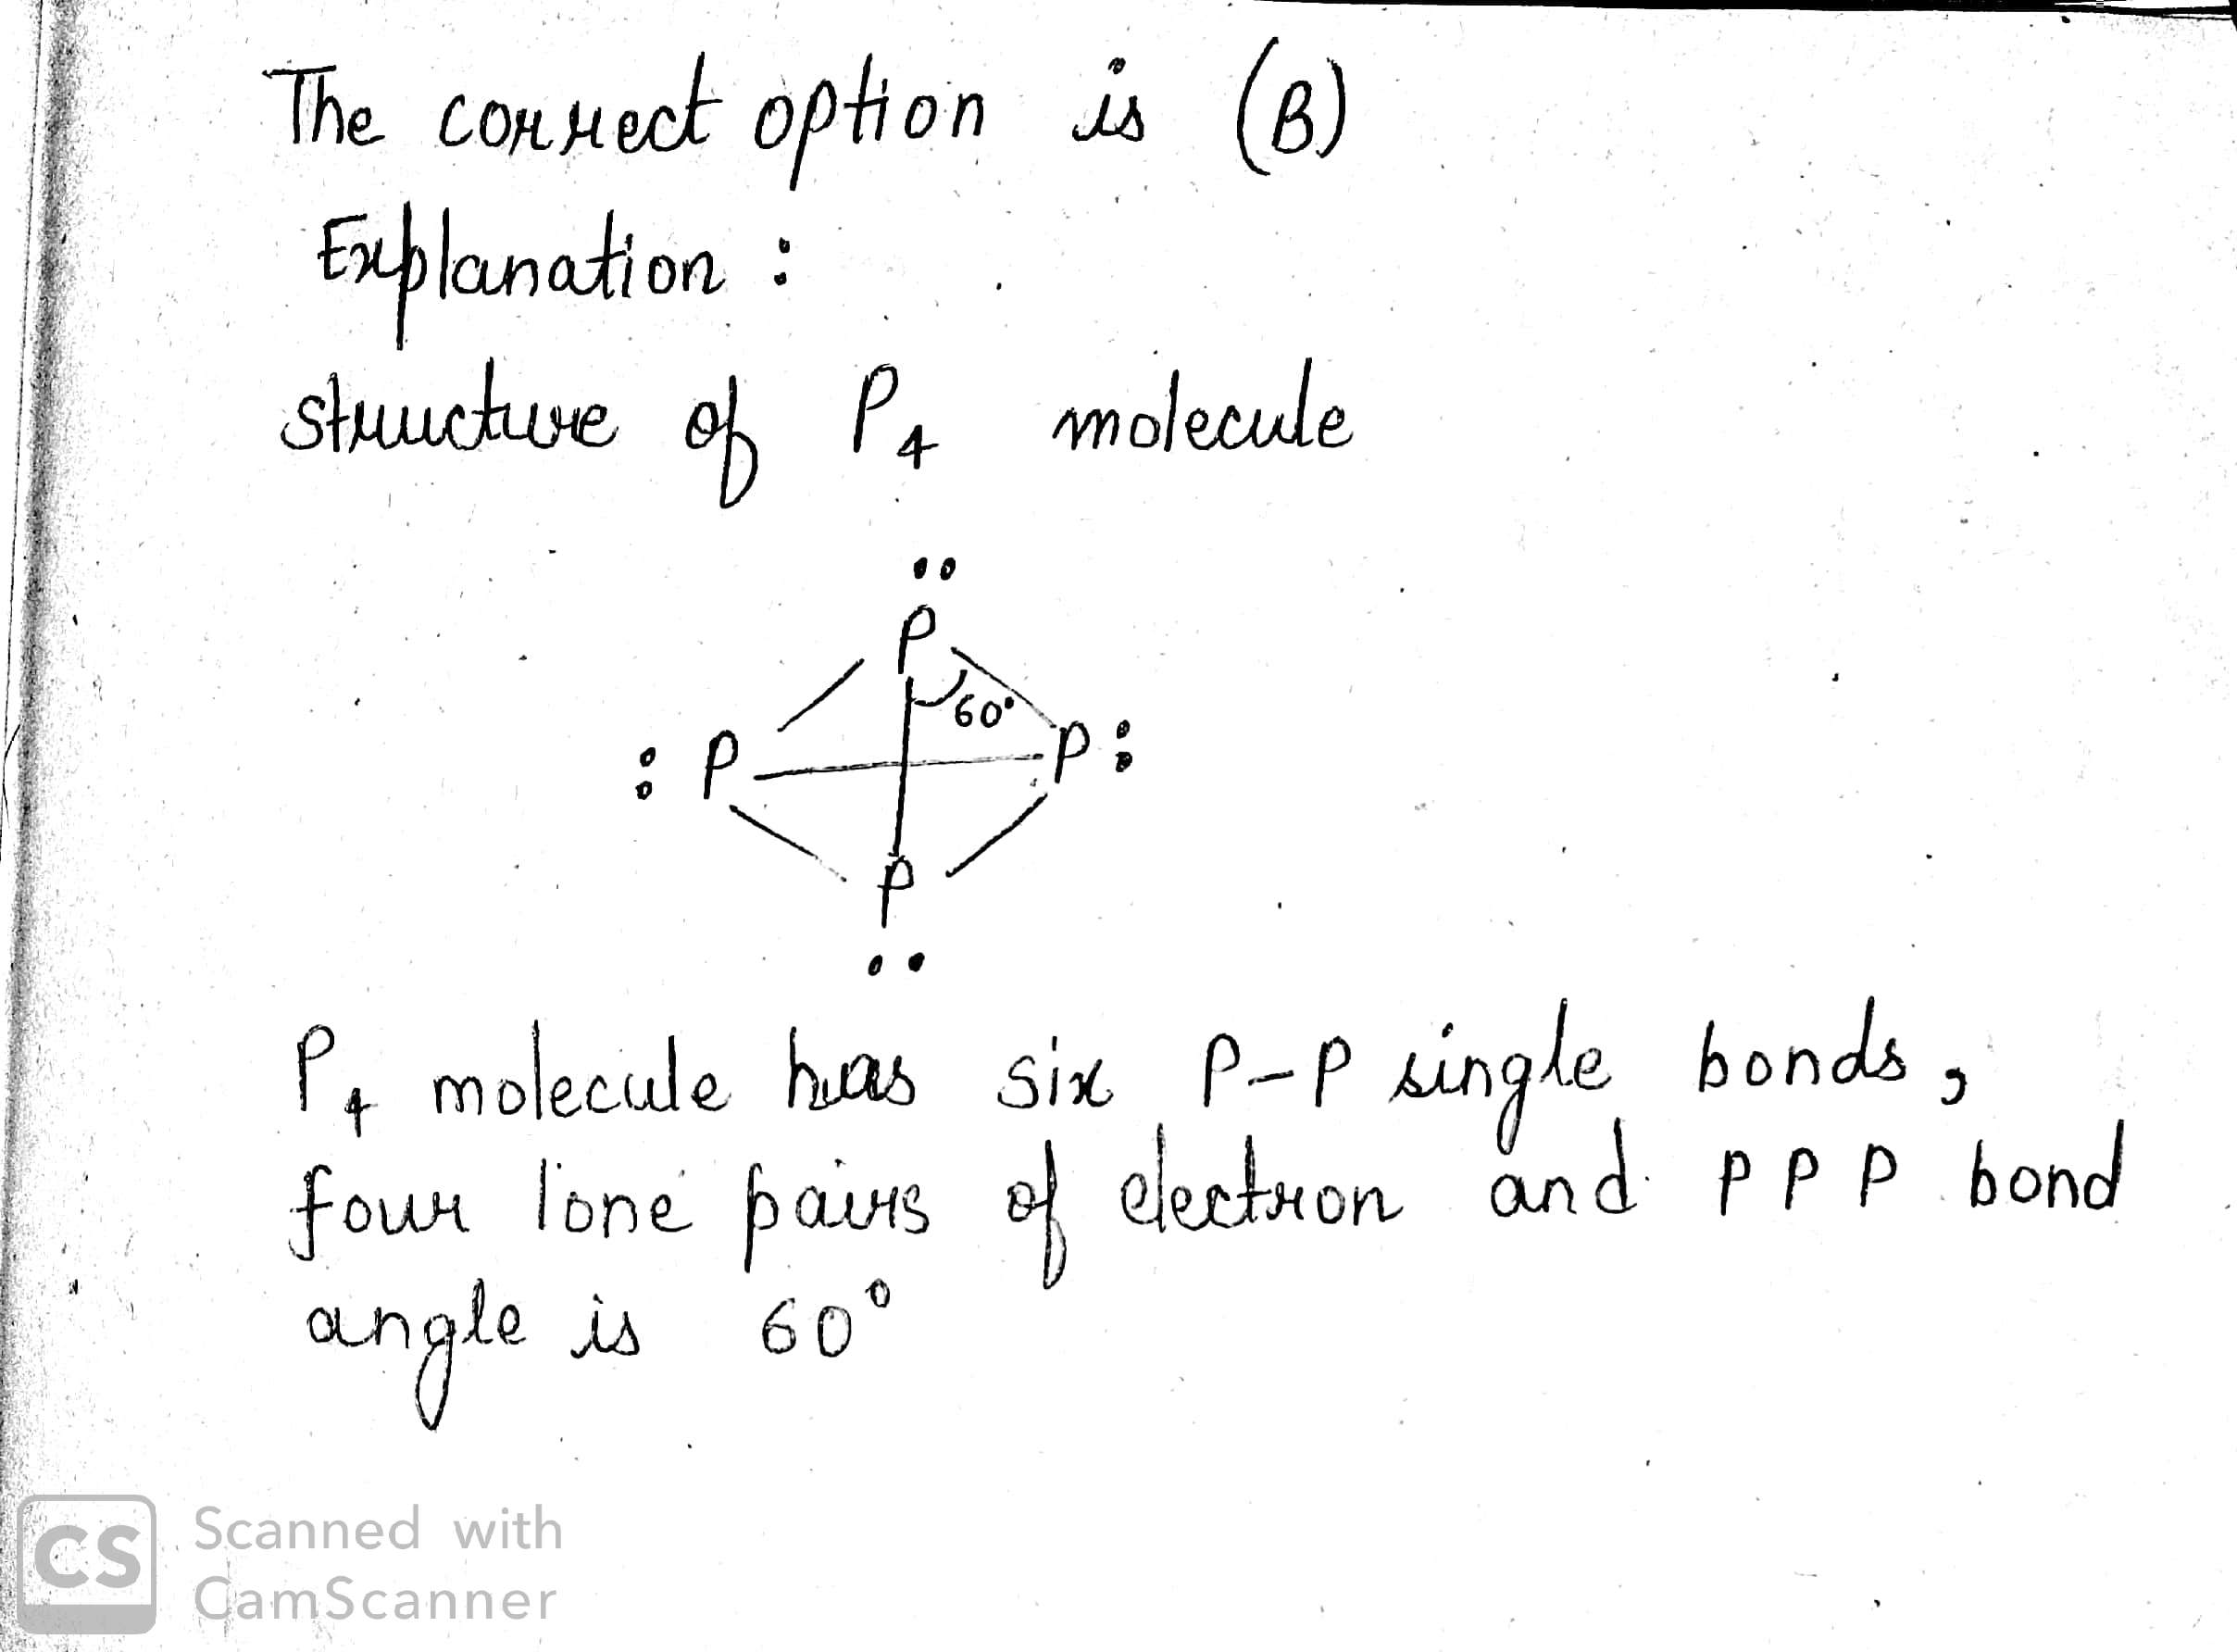 The correct option is (B)
Explanation :
structure of P4 molecule
..
P
60°
: P P :
P
..
P4 molecule has six P-P single bonds,
four lone pairs of electron and P P P bond
angle is 60°
CS Scanned with
CamScanner